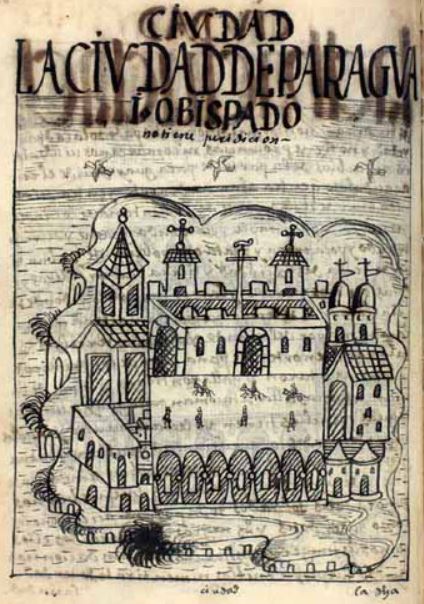 CIVDAD
LACIVDADDEPARAGVA
I·OBISPADO
no tiene juridicion
ciudad
la dha